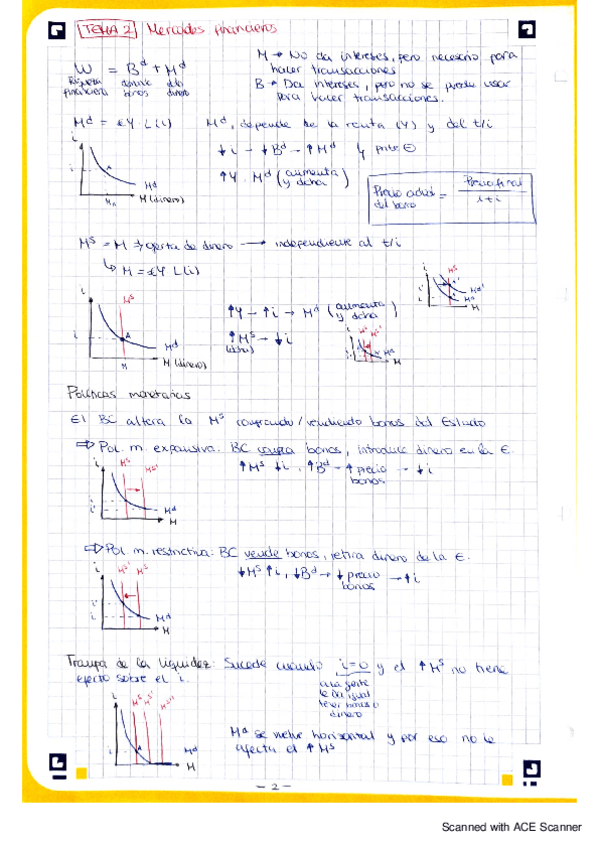 [TEMA 2] Mercados financieros
W = Bᵈ + Mᵈ
Riqueza financiera
bonos
dinero
M → No da intereses, pero necesario para
hacer transacciones
B → Da intereses, pero no se puede usar
para hacer transacciones.
Mᵈ = €Y · L(i)
Mᵈ, depende de la renta (Y) y del t/i
↓i → ↓Bᵈ → ↑Mᵈ
↑Y · Mᵈ (aumenta
y dcha)
Precio actual
del bono
=
Precio final
1+i
i
A
Mᵈ
M (dinero)
Mˢ = M ⇒ oferta de dinero → independiente al t/i
↳ M = €Y L(i)
i
Mˢ
i
A
Mᵈ
M
M (dinero)
↑Y → ↑i → Mᵈ (aumenta
y dcha)
↑Mˢ → ↓i
(dcha)
i
Mˢ
Mᵈ'
M
Políticas monetarias
El BC altera la Mˢ comprando/vendiendo bonos del Estado
⇒ Pol. m. expansiva: BC compra bonos, introduce dinero en la E.
↑Mˢ ↓i, ↑Bᵈ → ↑ precio
bonos
→ ↓i
i
Mˢ Mˢ'
i
i'
Mᵈ
M
⇒ Pol. m. restrictiva: BC vende bonos, retira dinero de la E.
↓Mˢ ↑i, ↓Bᵈ → ↓ precio
bonos
→ ↑i
i
Mˢ' Mˢ
i'
i
Mᵈ
M
Trampa de la liquidez: Sucede cuando i=0 y el ↑Mˢ no tiene
efecto sobre el i.
a la gente
le da igual
tener bonos o
dinero
Mᵈ se vuelve horizontal y por eso no le
afecta el ↑Mˢ
i
Mˢ Mˢ' Mˢ''
i
A
Mᵈ
M
- 2 -
Scanned with ACE Scanner